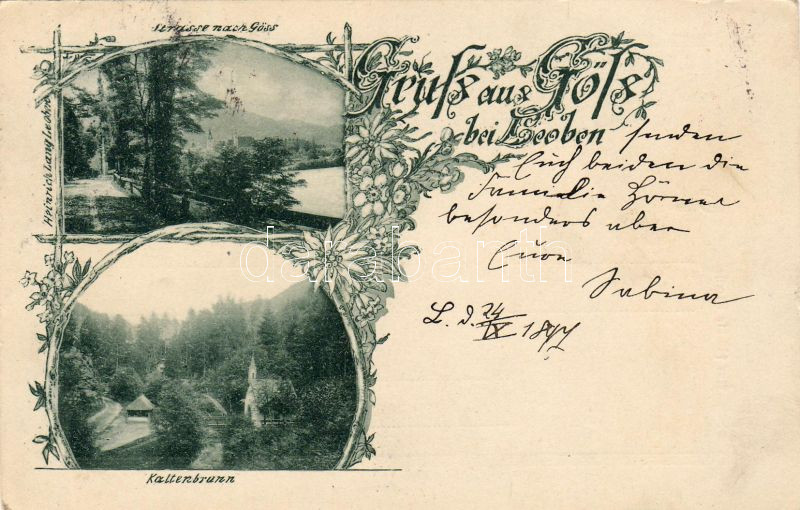 Strasse nach Göss
Heinrich Lang Leoben
Gruss aus Göss
bei Leoben
senden
Euch beiden die
Familie
besonders aber
Eure
Sabina
L. d. 24/IX 1897
darabanth
Kaltenbrunn